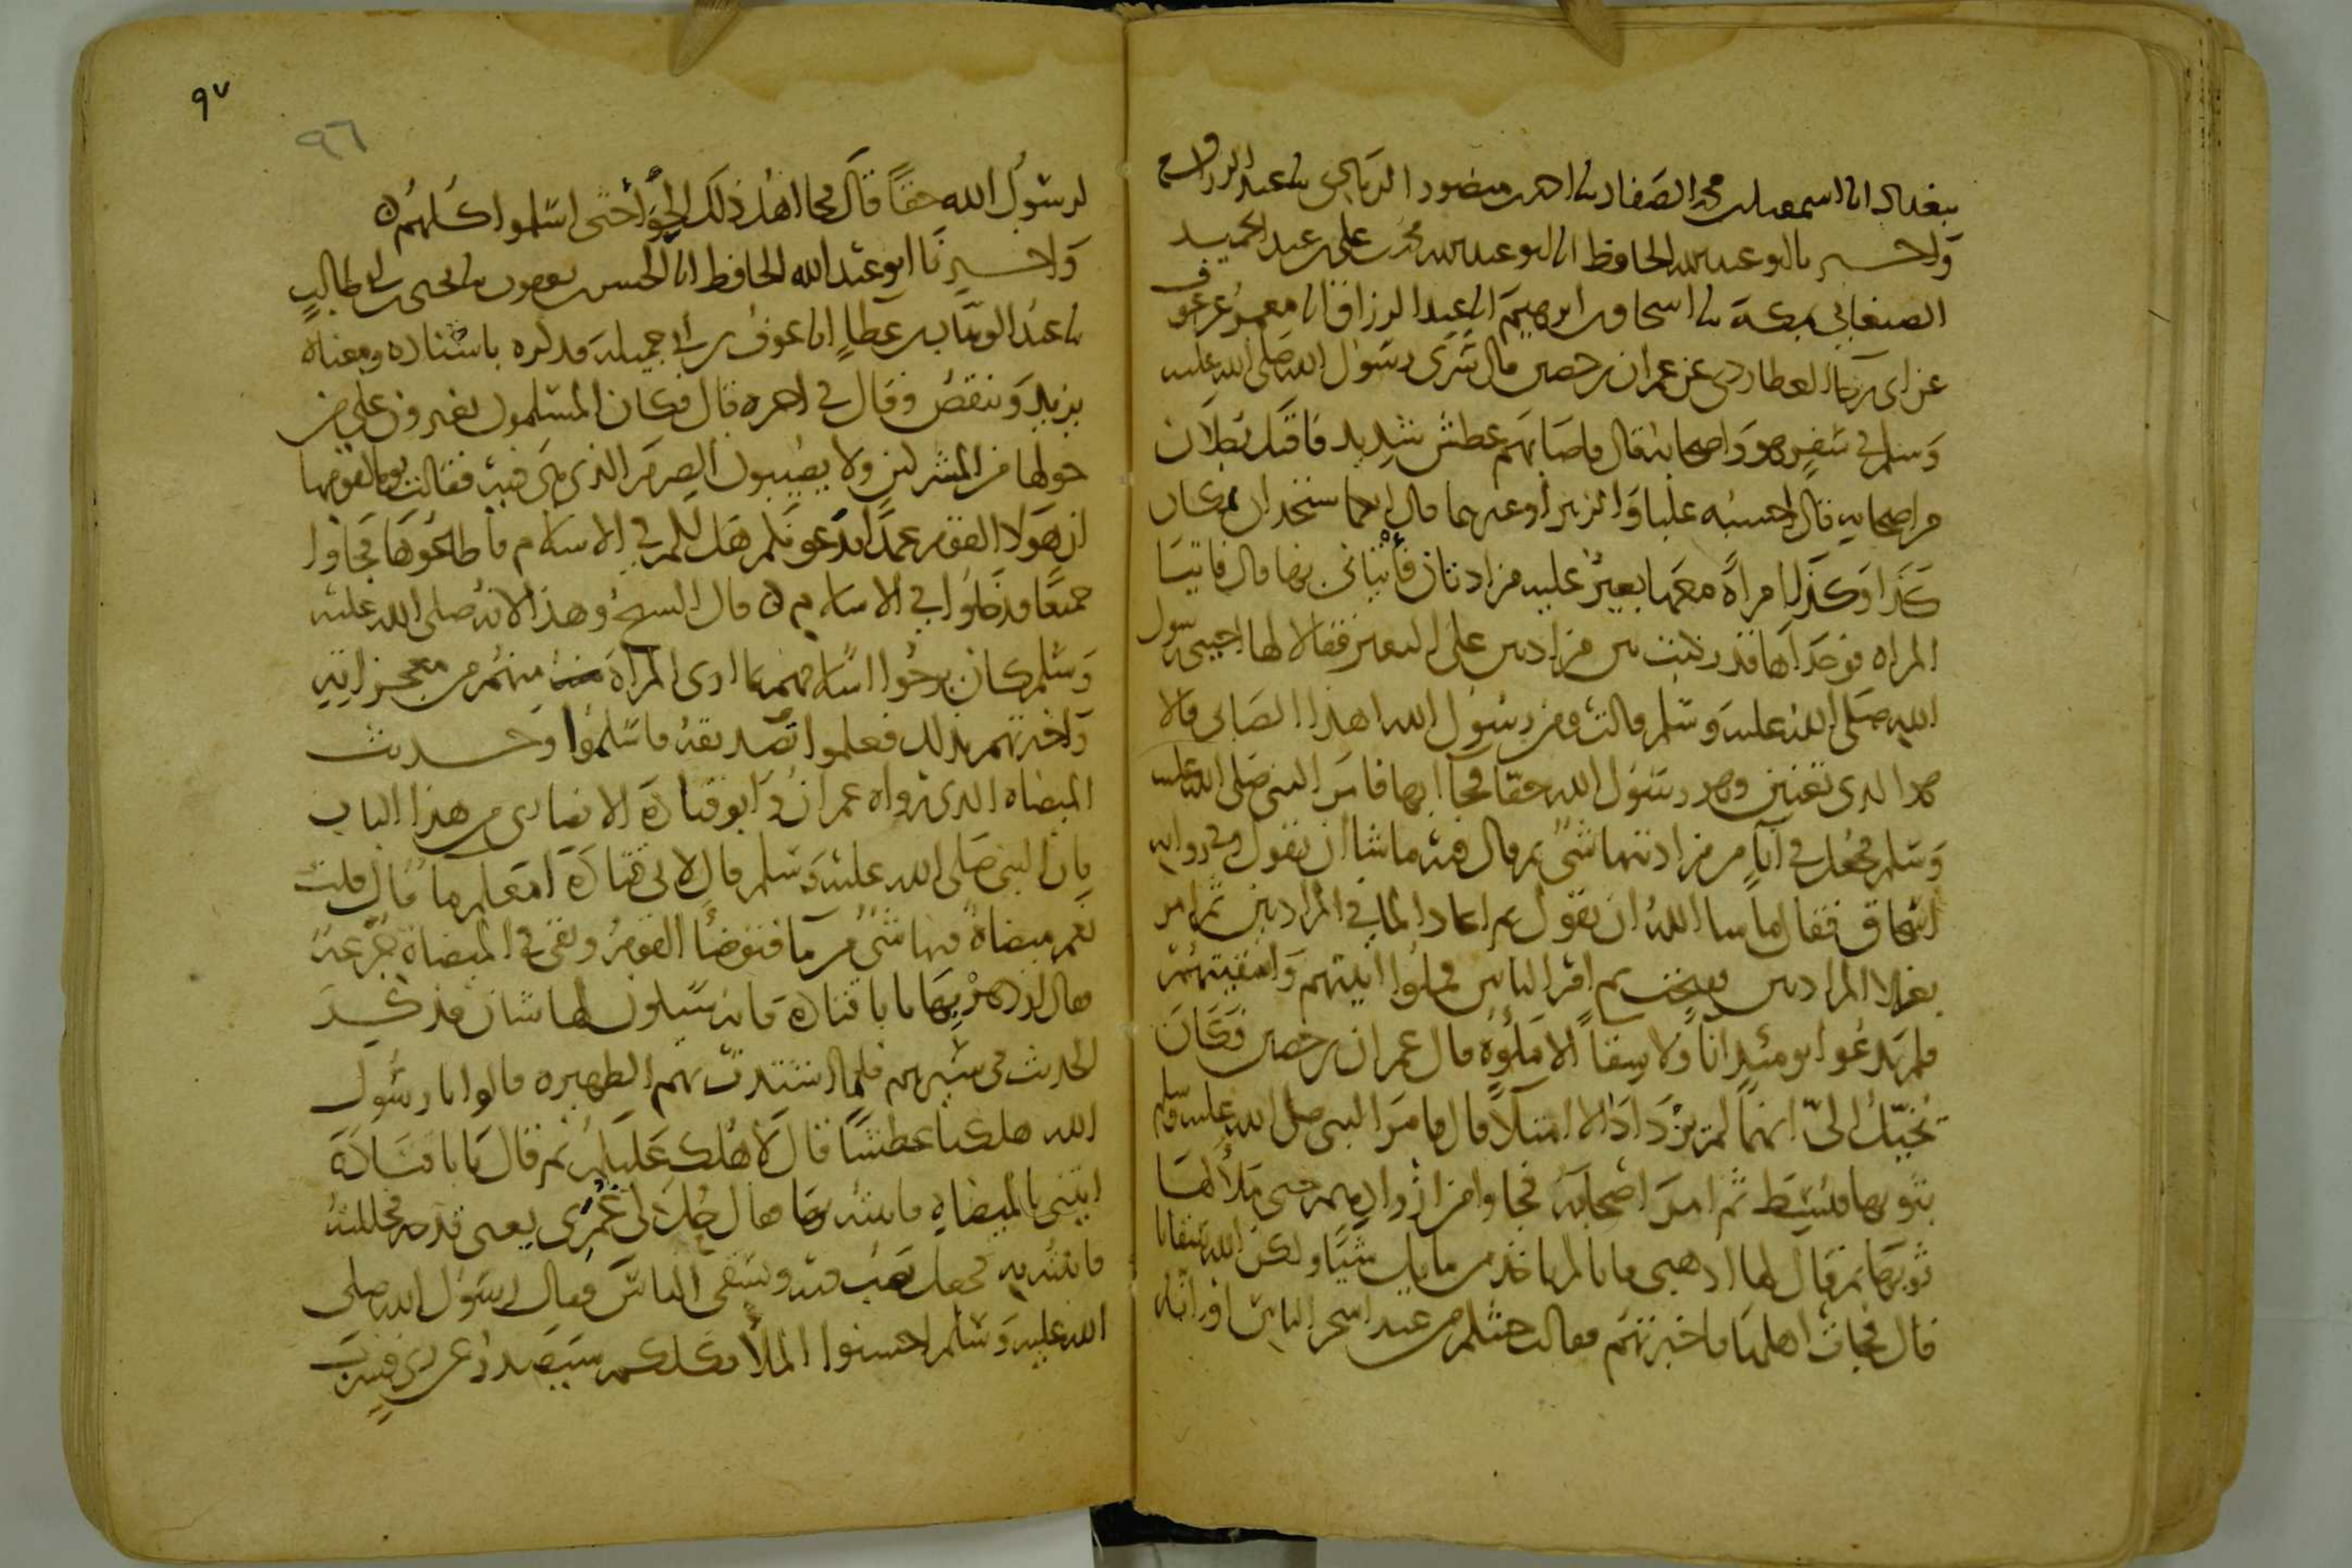 ببغداد انا اسمعيل بن محمد الصفار نا احمد بن منصور الرمادي نا عبد الرزاق ح
واخبرنا ابو عبد الله الحافظ انا ابو عبد الله محمد بن علي بن عبد الحميد
الصنعاني بمكة نا اسحاق بن ابرهيم انا عبد الرزاق انا معمر عن عوف
عن ابي رجاء العطاردي عن عمران بن حصين قال سرى رسول الله صلى الله عليه
وسلم في سفر هو واصحابه قال فاصابهم عطش شديد فاقبل رجلان
من اصحابه قال احسبه عليا والزبير او غيرهما قال انكما ستجدان بمكان
كذا وكذا امراة معها بعير عليه مزادتان فأتياني بها قال فاتيا
المراه فوجداها قد ركبت بين مزادتين على البعير فقالا لها اجيبي رسول
الله صلى الله عليه وسلم قالت ومن رسول الله اهذا الصابي قالا
هو الذي تعنين وهو رسول الله حقا فجاآ بها فامر النبي صلى الله عليه
وسلم فجعل في اناء من مزادتيها شيء ثم قال فيه ما شا ان يقول وفي رواية
اسحاق فقال ما شا الله ان يقول ثم اعاد الما في المزادتين ثم امر
بعزلاء المزادتين ففتحت ثم امر الناس فملوا آنيتهم واسقيتهم
فلم يدعوا يومئذ اناً ولا سقاً الا ملؤه قال عمران بن حصين فكان
يخيل الي انها لم تزدد الا امتلاً قال فامر النبي صلى الله عليه وسلم
بثوبها فبسط ثم امر اصحابه فجاوا من ازوادهم حتى ملأ لها
ثوبها ثم قال لها اذهبي فانا لم ناخذ من مائك شيئا ولكن الله سقانا
قال فجات اهلها فاخبرتهم فقالت جئتكم من عند اسحر الناس او انه
٩٧
٩٦
لرسول الله حقاً قال فجا اهل ذلك الحواء حتى اسلموا كلهم
واخبرنا ابو عبد الله الحافظ انا ابو الحسن بن يعقوب نا يحيى بن ابي طالب
نا عبد الوهاب بن عطا انا عوف بن ابي جميلة فذكره باسناده ومعناه
يزيد وينقص وقال في اخره قال فكان المسلمون يغيرون على من
حولها من المشركين ولا يصيبون الصرم الذي هي فيه فقالت يوما لقومها
ان هولا القوم عمدا يدعونكم هل لكم في الاسلام فاطاعوها فجاوا
جميعا فدخلوا في الاسلام قال الشيخ وهذا لانه صلى الله عليه
وسلم كان يرجوا اسلامهم بما ارى المراة منهم من معجزاته
واخبرتهم بذلك فعلموا تصديقه فاسلموا وحديث
الميضاه الذي رواه عمران وابو قتادة الانصاري من هذا الباب
فان النبي صلى الله عليه وسلم قال لابي قتادة امعكم ما قال قلت
نعم ميضاة فيها شي من ما فتوضا القوم وبقي في الميضاة جرعة
فقال ازدهر بها يا با قتادة فانه سيكون لها شان فذكر
الحديث في سيرهم فلما اشتدت بهم الظهيره قالوا يا رسول
الله هلكنا عطشا قال لا هلك عليكم ثم قال يا با قتادة
ايتني بالميضاة فاتيته بها فقال حل لي غمري يعني قدحه فحللته
فاتيته به فجعل يصب فيه ويسقي الناس فقال رسول الله صلى
الله عليه وسلم احسنوا الملأ فكلكم سيصدر عن ري فشرب